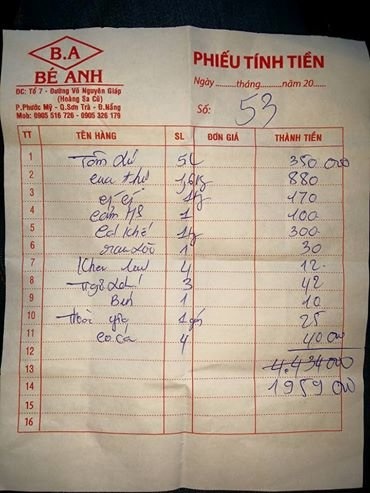 B.A
BÉ ANH
ĐC: Tổ 7 - Đường Võ Nguyên Giáp
(Hoàng Sa Cũ)
P.Phước Mỹ - Q.Sơn Trà - Đ.Nẵng
Mob: 0905 516 726 - 0905 326 179
PHIẾU TÍNH TIỀN
Ngày ........tháng........năm 20.....
Số: 53
TT TÊN HÀNG SL ĐƠN GIÁ THÀNH TIỀN
1 Tôm 350 000
2 cua 880
3 170
4 1 100
5 300
6 rau 1 30
7 Khăn 4 12
8 3 42
9 1 10
10 25
11 coca 4 40 000
12
13 4.434 000
14 1959 000
15
16